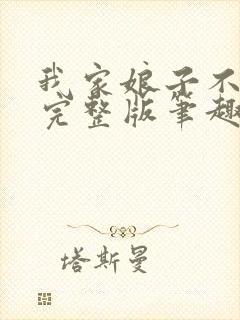 我家娘子不
完整版笔趣
塔斯曼